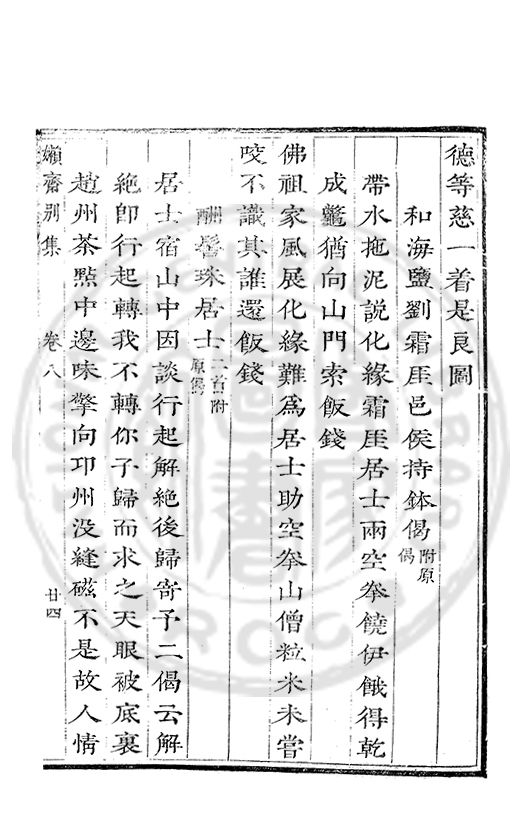 德等慈一着是良圖
和海鹽劉霜厓邑侯持鉢偈附原偈
帶水拖泥說化緣霜厓居士兩空拳饒伊餓得乾
成鼈猶向山門索飯錢
佛祖家風展化緣難爲居士助空拳山僧粒米未嘗
咬不識其誰還飯錢
酬髻珠居士二首附原偈
居士宿山中因談行起解絕後歸寄予二偈云解
絕卽行起轉我不轉你予歸而求之天眼被底裏
趙州茶㸃中邊味擎向邛州没縫磁不是故人情
嬾齋別集 卷八 廿四